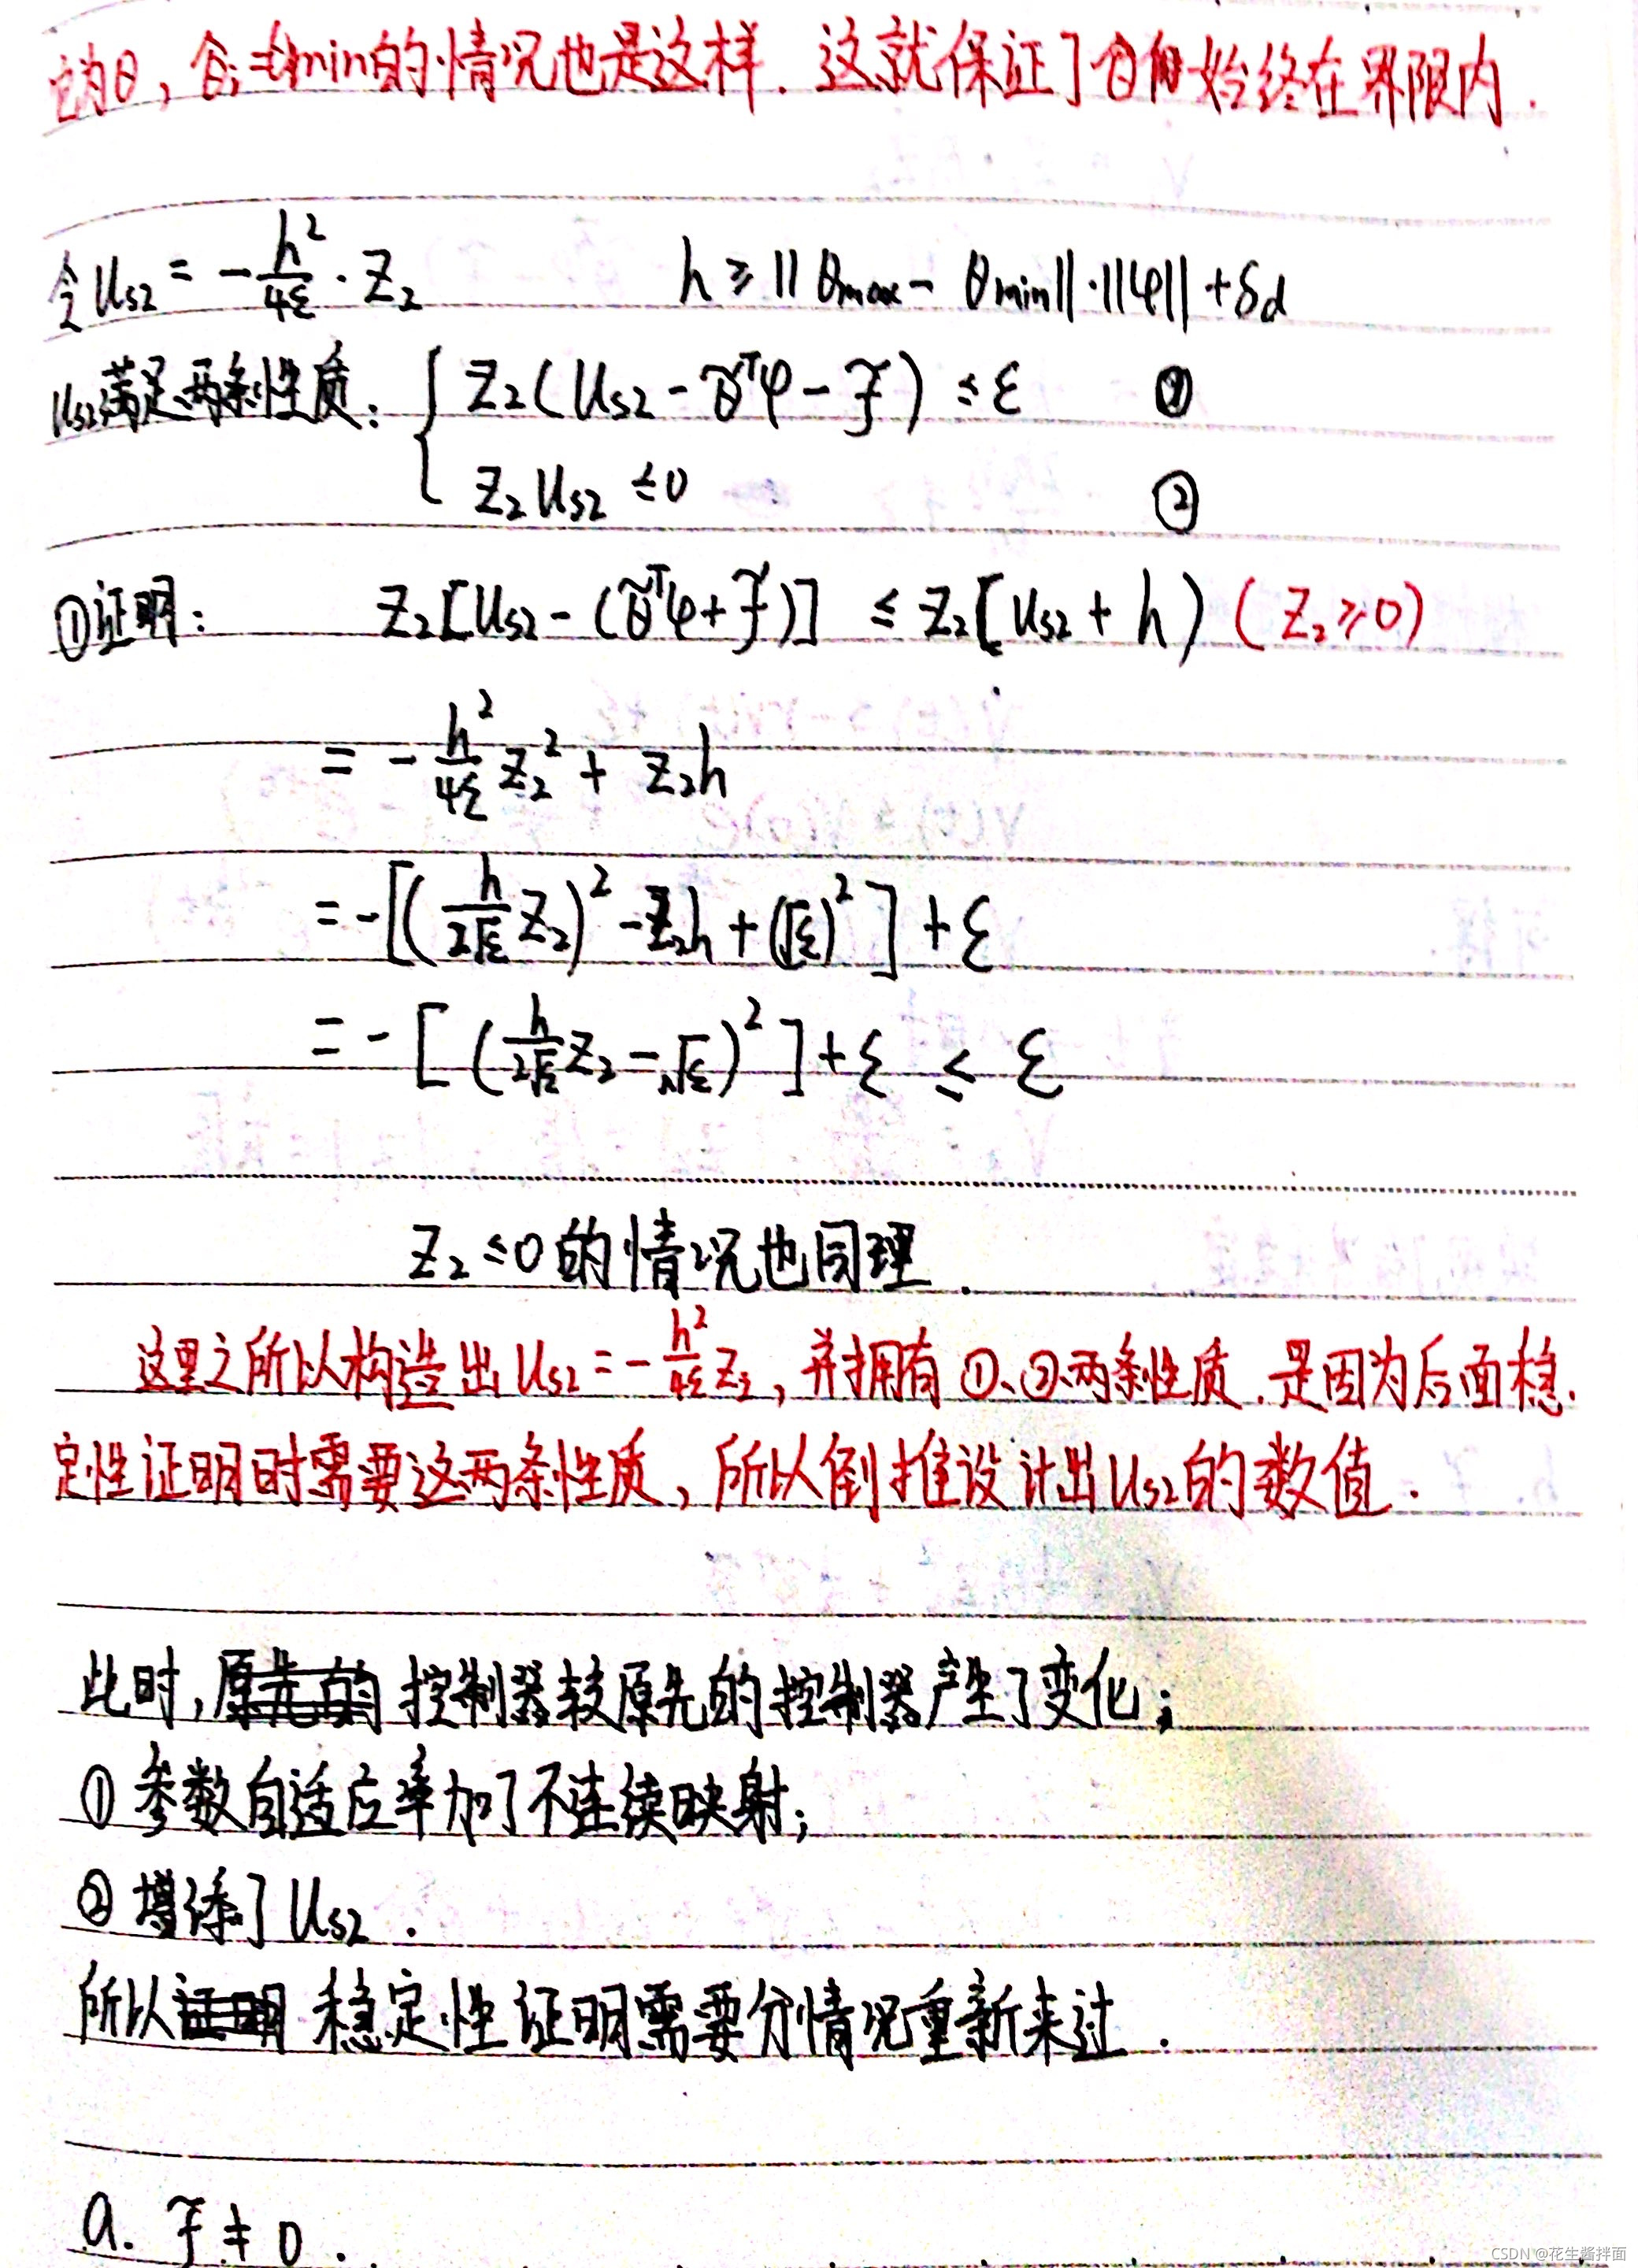 它为θ，θ̂ᵢ=θmin的情况也是这样．这就保证了θ̂始终在界限内．
令Us2 = -h²/4ε · Z2    h ≥ ||θmax - θmin||·||φ|| + δd
Us2满足两条性质： { Z2(Us2 - θ̃ᵀφ - f̃) ≤ ε ①
Z2Us2 ≤ 0 ②
①证明： Z2[Us2 - (θ̃ᵀφ + f̃)] ≤ Z2[Us2 + h) (Z2≥0)
= -h²/4ε Z2² + Z2h
= -[(h/2√ε Z2)² - Z2h + (√ε)²] + ε
= -[(h/2√ε Z2 - √ε)²] + ε ≤ ε
Z2≤0的情况也同理．
这里之所以构造出Us2 = -h²/4ε Z2，并拥有①、②两条性质．是因为后面稳
定性证明时需要这两条性质，所以倒推设计出Us2的数值．
此时，控制器较原先的控制器产生了变化；
①参数自适应率加了不连续映射；
②增添了Us2．
所以稳定性证明需要分情况重新来过．
a. f̃ ≠ 0．
CSDN @花生酱拌面